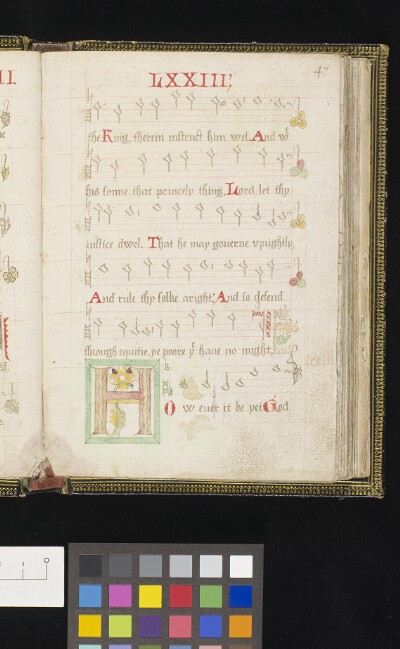 LXXIII;
47
the King, therein instruct him wel. And wᵗ
his sonne that princely thing, Lord, let thy
iustice dwel. That he may governe vprightly,
And rule thy folke aright; And so defend
through equitie, yᵉ poore yᵗ haue no might.
How euer it be yet God